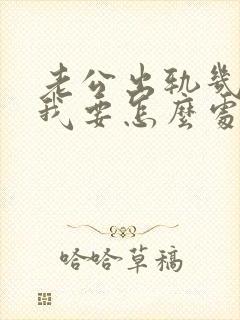 老公出轨幾
我要怎麼處
哈哈草稿